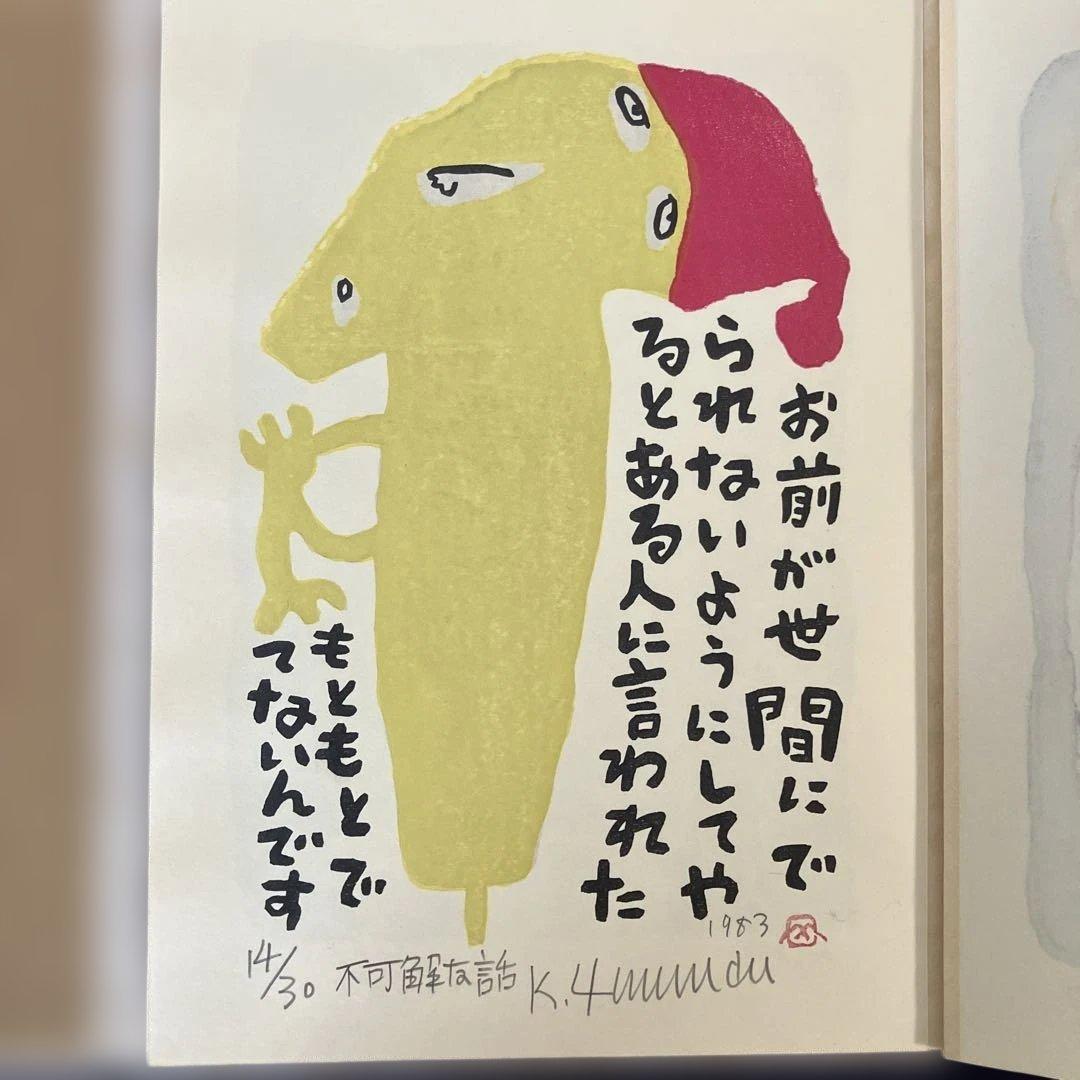 お前が世間にで
られないようにしてや
るとある人に言われた
もともとで
てないんです
1983
14/30 不可解な話 K.